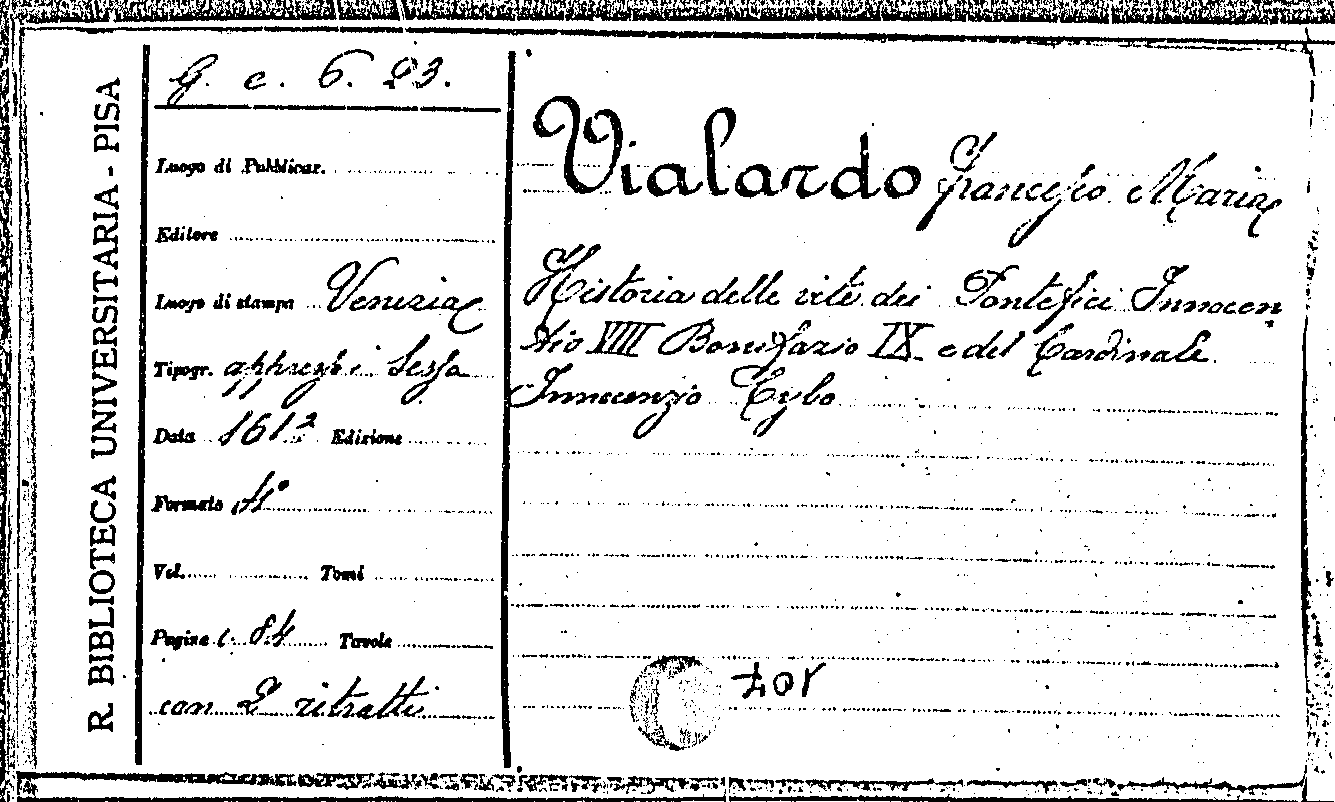 R. BIBLIOTECA UNIVERSITARIA - PISA
G. c. 6. 23.
Luogo di Pubblicaz.
Editore
Luogo di stampa Venezia
Tipogr. appresso i Sessa
Data 1613 Edizione
Formato 4°
Vol. Tomi
Pagine c. 84 Tavole
con 2 ritratti
Vialardo Francesco Maria
Historia delle vite dei Pontefici Innocen
tio VIII Bonifazio IX e del Cardinale
Innocenzio Cybo